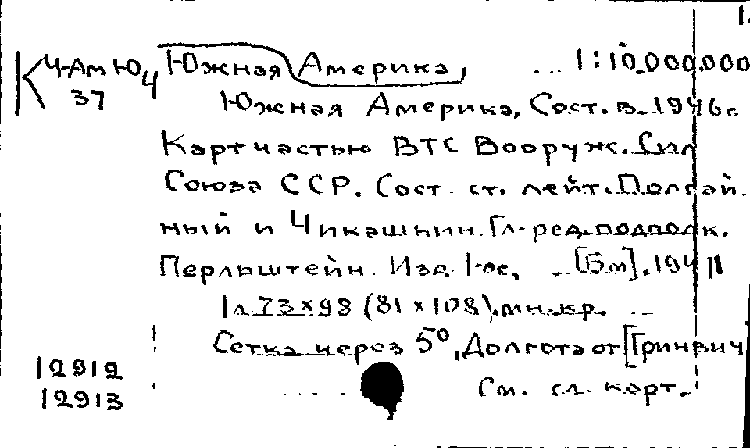 К Ч-Ам Ю Южная Америка, ... 1:10.000.000
37 Ч
Южная Америка, Сост. в 1946 г.
Картчастью ВТС Вооруж. Сил
Союза ССР. Сост. ст. лейт.
ный и Чикашнин. Гл. ред. подполк.
Перльштейн. Изд. 1-ое, ... [Б.м],
1 л. 73×98 (81×108), мн. кр. ...
Сетка через 5°, Долгота от [Гринвич
12912
См. сл. карт.
12913